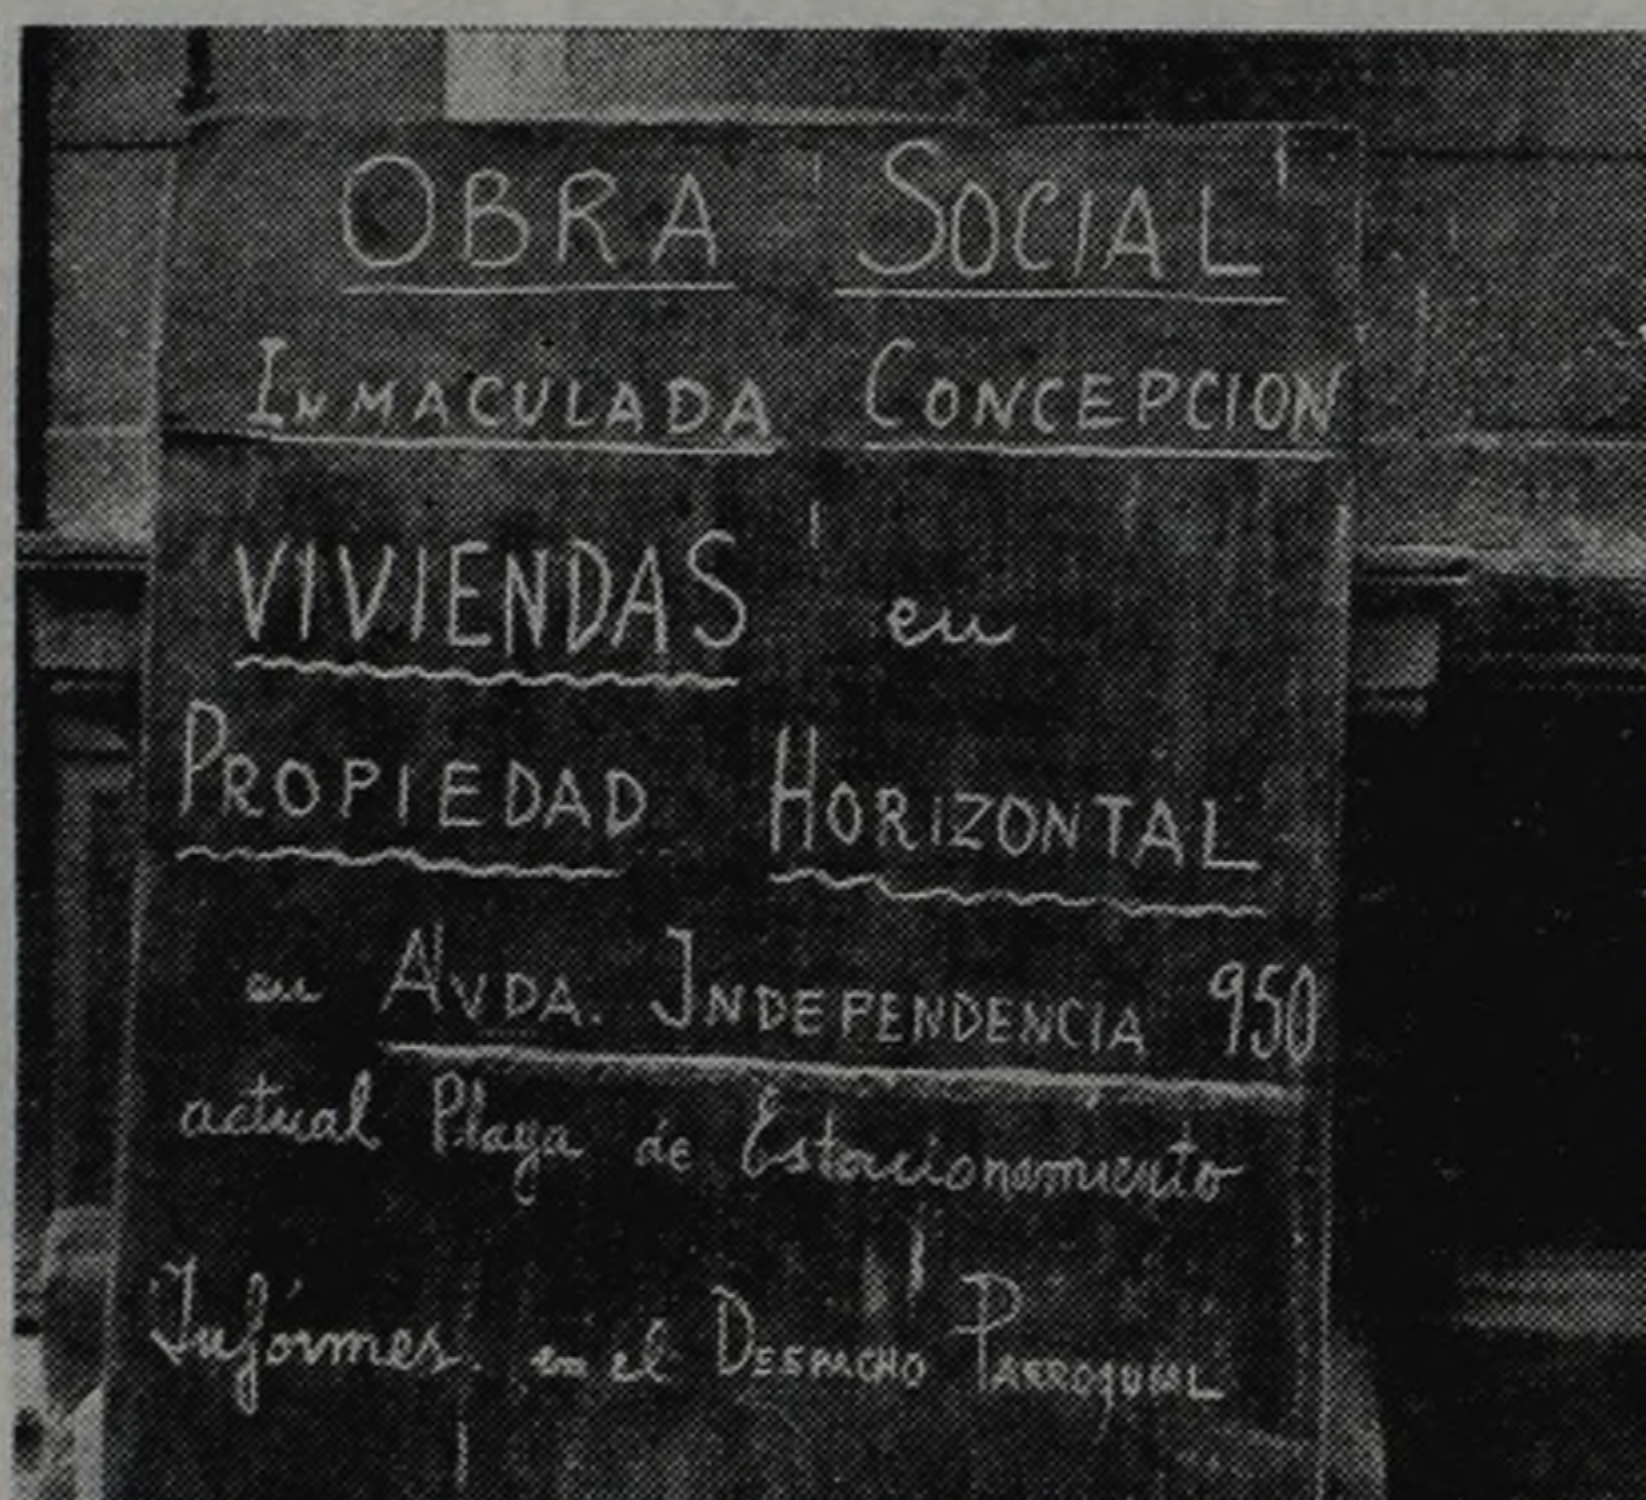 OBRA SOCIAL
INMACULADA CONCEPCION
VIVIENDAS en
PROPIEDAD HORIZONTAL
en AVDA. INDEPENDENCIA 950
actual Playa de Estacionamiento
Infórmes. en el DESPACHO PARROQUIAL